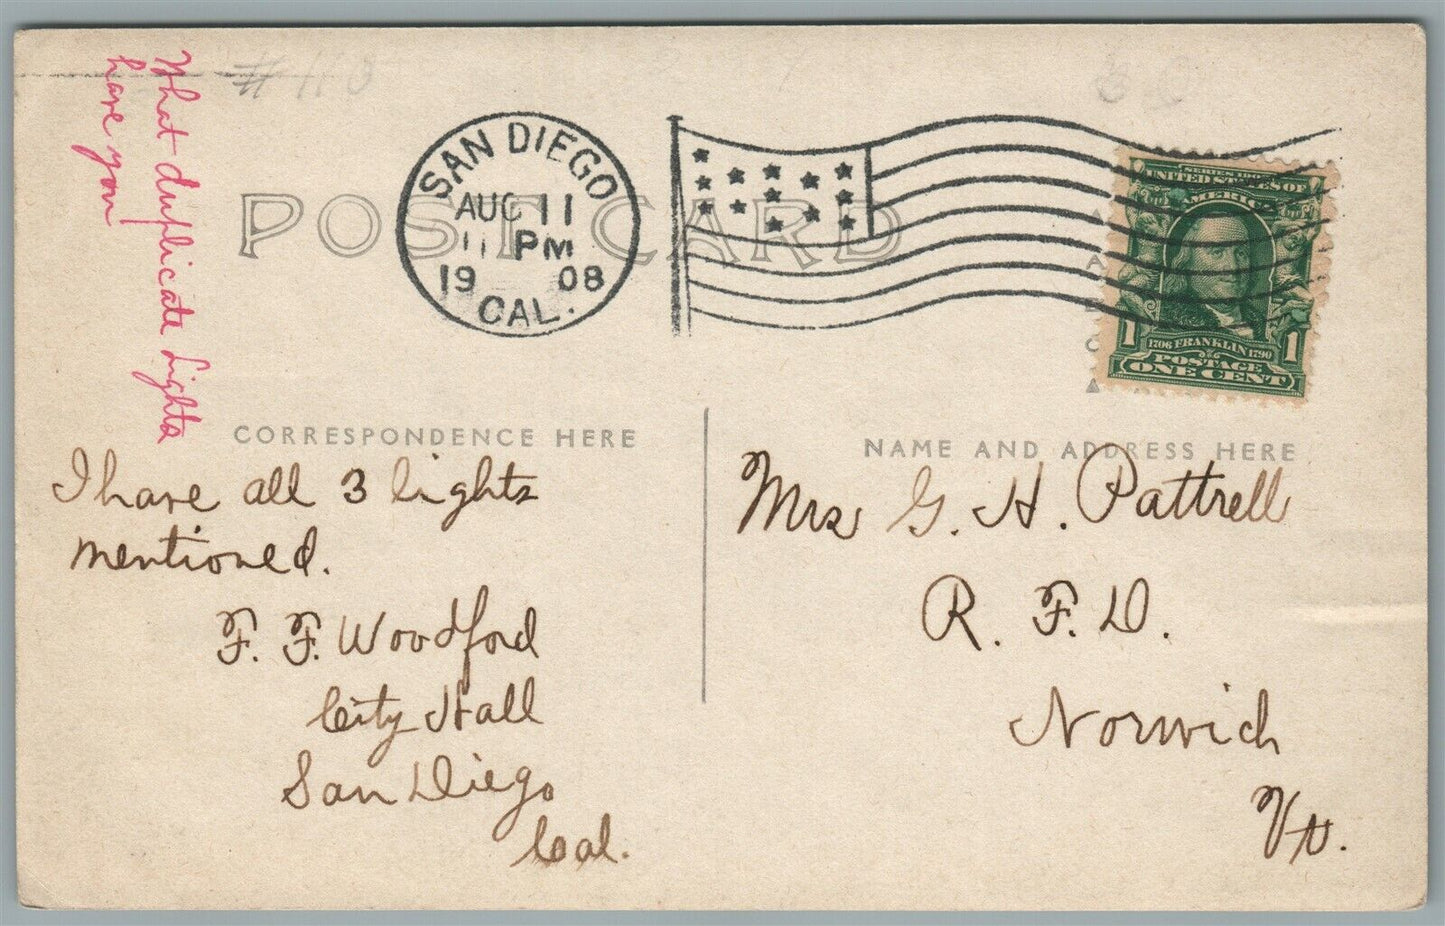 What duplicate Lights
have you
# 110
SAN DIEGO
AUG 11
11 PM
1908
CAL.
POST CARD
UNITED STATES OF
AMERICA
1706 FRANKLIN 1790
POSTAGE
1 ONE CENT 1
CORRESPONDENCE HERE
I have all 3 lights
mentioned.
F. F. Woodford
City Hall
San Diego
Cal.
NAME AND ADDRESS HERE
Mrs G. H. Pattrell
R. F. D.
Norwich
Vt.